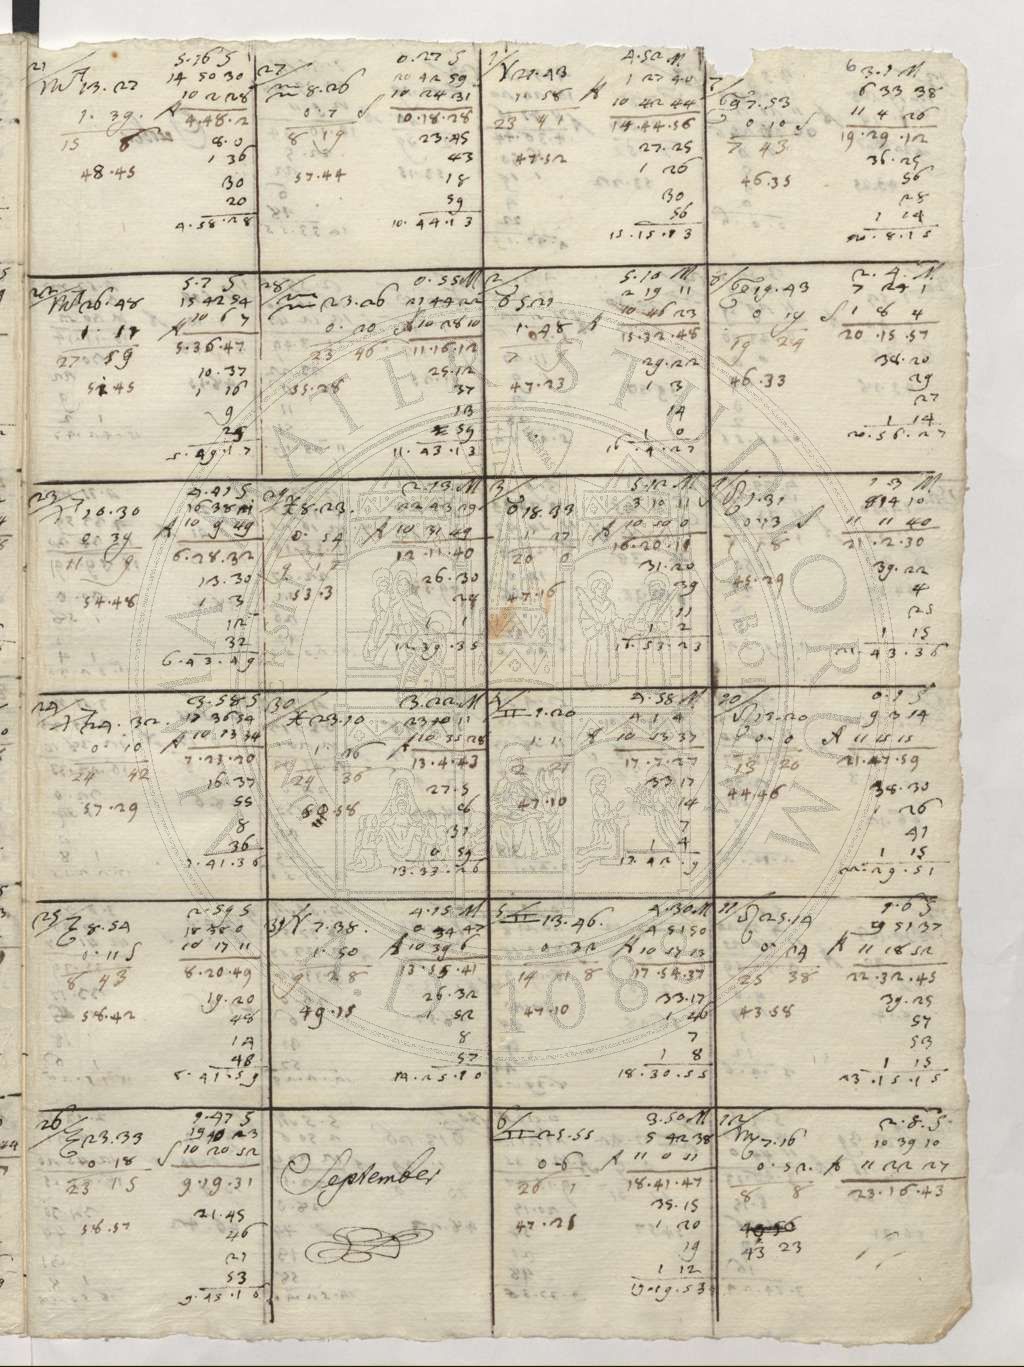 21/ 5.16 S
♏ 13.27 14 50 30
1.39. A 10 2 28
15 8 4.48.2
8.0
1 36
48.45
30
20
4.58.28
22/ 5.7 S
♏ 26.48 15 42 54
1.11 A 10 6 7
27 59 5.36.47
10.37
51.45 1 16
9
25
5.49.17
23/ 4.41 S
♐ 10.30
0 39 A 10 9 49
11 9 6.28.32
13.30
54.48 1 3
12
32
6.43.49
24/ 3.58 S
♐ 24.32. 17 36 54
0.10 A 10 13 34
24 42 7.23.20
16.37
57.29 55
8
36
7.41.36
25/ 2.59 S
♑ 8.54 18 38 0
0.11 S 10 17 11
8 43 8.20.49
19.20
58.42 48
14
48
8.41.59
26/ 1.47 S
♑ 23.33
0.18 S 10 20 52
23 15 9.19.31
21.45
58.57 46
21
53
9.45.16
27/ 0.27 S
♒ 8.26 20 42 59
0.7 S 10 24 31
8 19 10.18.28
23.45
43
57.44 18
59
10.44.13
28/ 0.55 M
♒ 23.26 21 44 22
0.20 A 10 28 10
23 46 11.16.12
25.12
55.28 37
13
59
11.43.13
29/ 2.13 M
♓ 8.23. 22 43 29
0.54 A 10 31 49
9 17 12.11.40
26.30
53.3 28
1 1
12.39.35
30/ 3.22 M
♓ 23.10
1.26 A 10 35 28
24 36 13.4.43
27.5
26
31
0.59
13.33.26
31/ 4.15 M
♈ 7.38. 0 34 47
1.50 A 10 39 6
9 28 13.55.41
26.32
49.15 1 52
8
57
14.25.10
September
1/ 4.52 M
♈ 21.43 1 27 40
1.58 A 10 42 44
23 41 14.44.56
27.25
47.52 1 26
30
56
15.15.13
2/ 5.10 M
♉ 5.21 2 19 11
1.48 A 10 46 23
15.32.48
29.22
47.23 1 3
14
1 0
16.4.27
3/ 5.12 M
♉ 18.33 3 10 11
1 27 A 10 50 0
20 0 16.20.11
31.20
47.16 39
11
1 2
16.53.23
4/ 4.58 M
♊ 1.20 4 1 4
1.1 A 10 53 37
2 21 17.7.27
33.17
47.10 14
7
1 4
17.42.9
5/ 4.30 M
♊ 13.46. 4 51 50
0.32 A 10 57 13
14 18 17.54.37
33.17
47.10 1 46
7
1 8
18.30.55
6/ 3.50 M
♊ 25.55 5 42 38
0.6 A 11 0 51
26 1 18.41.47
35.15
47.21 1 20
19
1 12
19.19.53
7/ 3.1 M
♋ 7.53 6 33 38
0 10 S 11 4 26
7 43 19.29.12
36.25
46.35 56
28
1 14
20.8.15
8/ 2.4.M
♋ 19.43 7 24 1
0 19 S 11 8 4
19 24 20.15.57
38.20
46.33 29
27
1 14
20.56.27
9/ 1.3 M
♌ 1.31 8 14 10
0.13 S 11 11 40
1 18 21.2.30
39.22
45.29 4
25
1 15
21.43.36
10/ 0.1 S
♌ 13.20 9 3 14
0.0 A 11 15 15
13 20 21.47.59
38.30
44.46 1 26
41
1 15
22.29.51
11/ 1.0 S
♌ 25.14 9 51 37
0.24 A 11 18 52
25 38 22.32.45
39.25
43.58 57
53
1 15
23.15.15
12/ 2.8.S
♍ 7.16 10 39 10
0.52. A 11 22 27
8 8 23.16.43
43 23